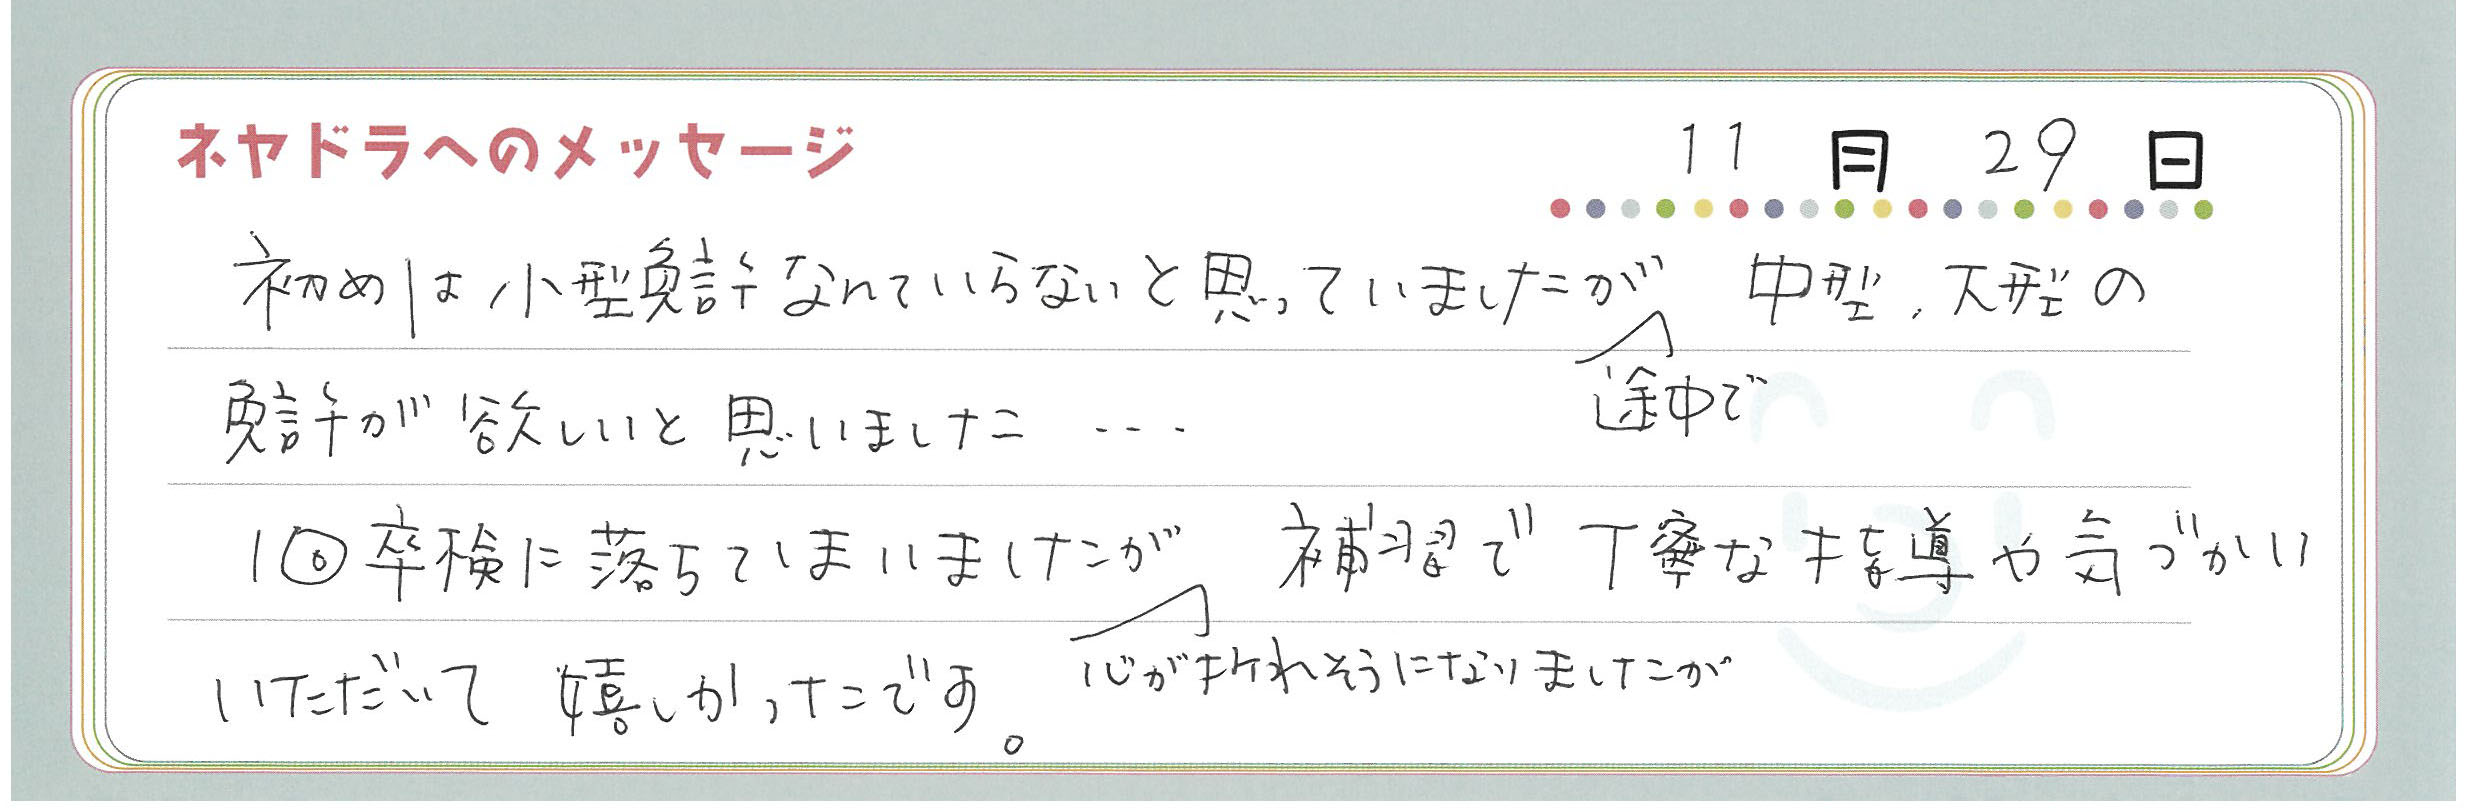 ネヤドラへのメッセージ
11月29日
初めは小型免許なんていらないと思っていましたが 中型、大型の
途中で
免許が欲しいと思いました ...
1回卒検に落ちてしまいましたが 補習で丁寧な指導や気づかい
心が折れそうになりましたが
いただいて 嬉しかったです。